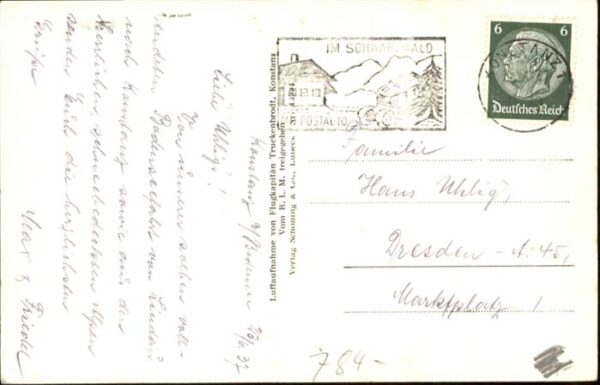 Konstanz a/Bodensee 23/6.37
Liebe Uhligs!
Von unserer soeben voll-
endeten Bodenseefahrt von Lindau
nach Konstanz sowie aus den
herrlichen, schneebedeckten Alpen
senden Euch die herzlichsten
Grüße
Max & Friedel
Luftaufnahme von Flugkapitän Truckenbrodt, Konstanz
Vom R. L. M. freigegeben
Verlag Schöning & Co., Lübeck
IM SCHWARZWALD
POSTAUTO
KONSTANZ 1
6 6
Deutsches Reich
Familie
Hans Uhlig,
Dresden - A. 45,
Marktplatz 1
784-